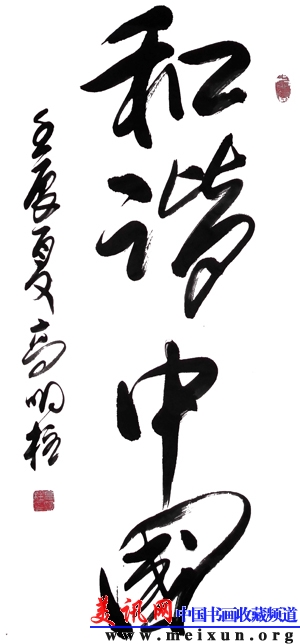 和谐中国
壬辰夏高明柱
美讯网 中国书画收藏频道
www.meixun.org